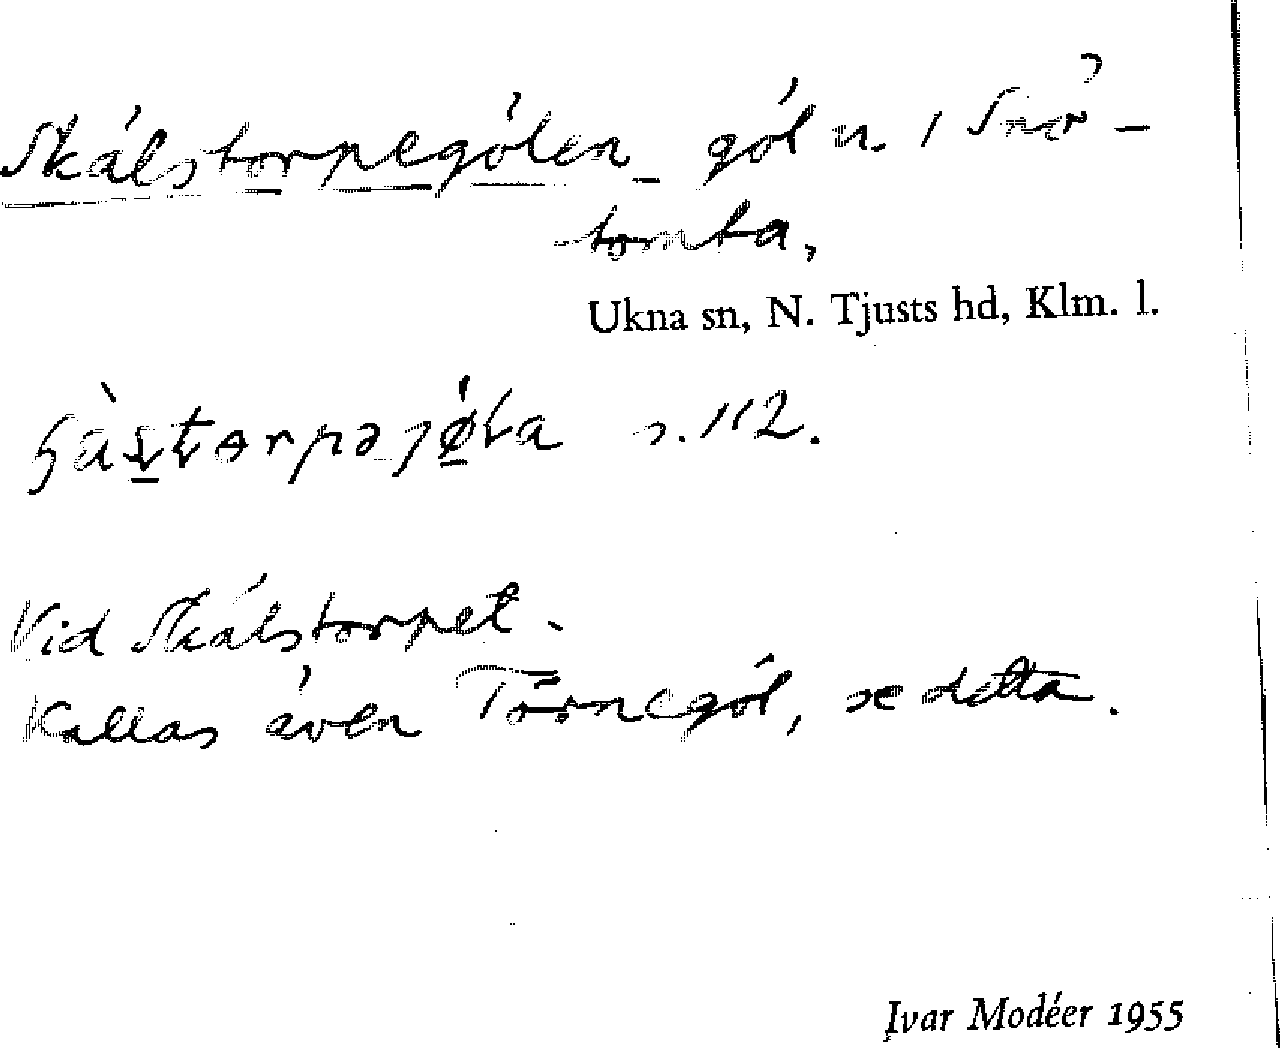 Skälstorpegölen göl n. i Snör-
tomta,
Ukna sn, N. Tjusts hd, Klm. l.
s. 112.
Vid Skälstorpet.
Kallas även Törnegöl, se detta.
Ivar Modéer 1955